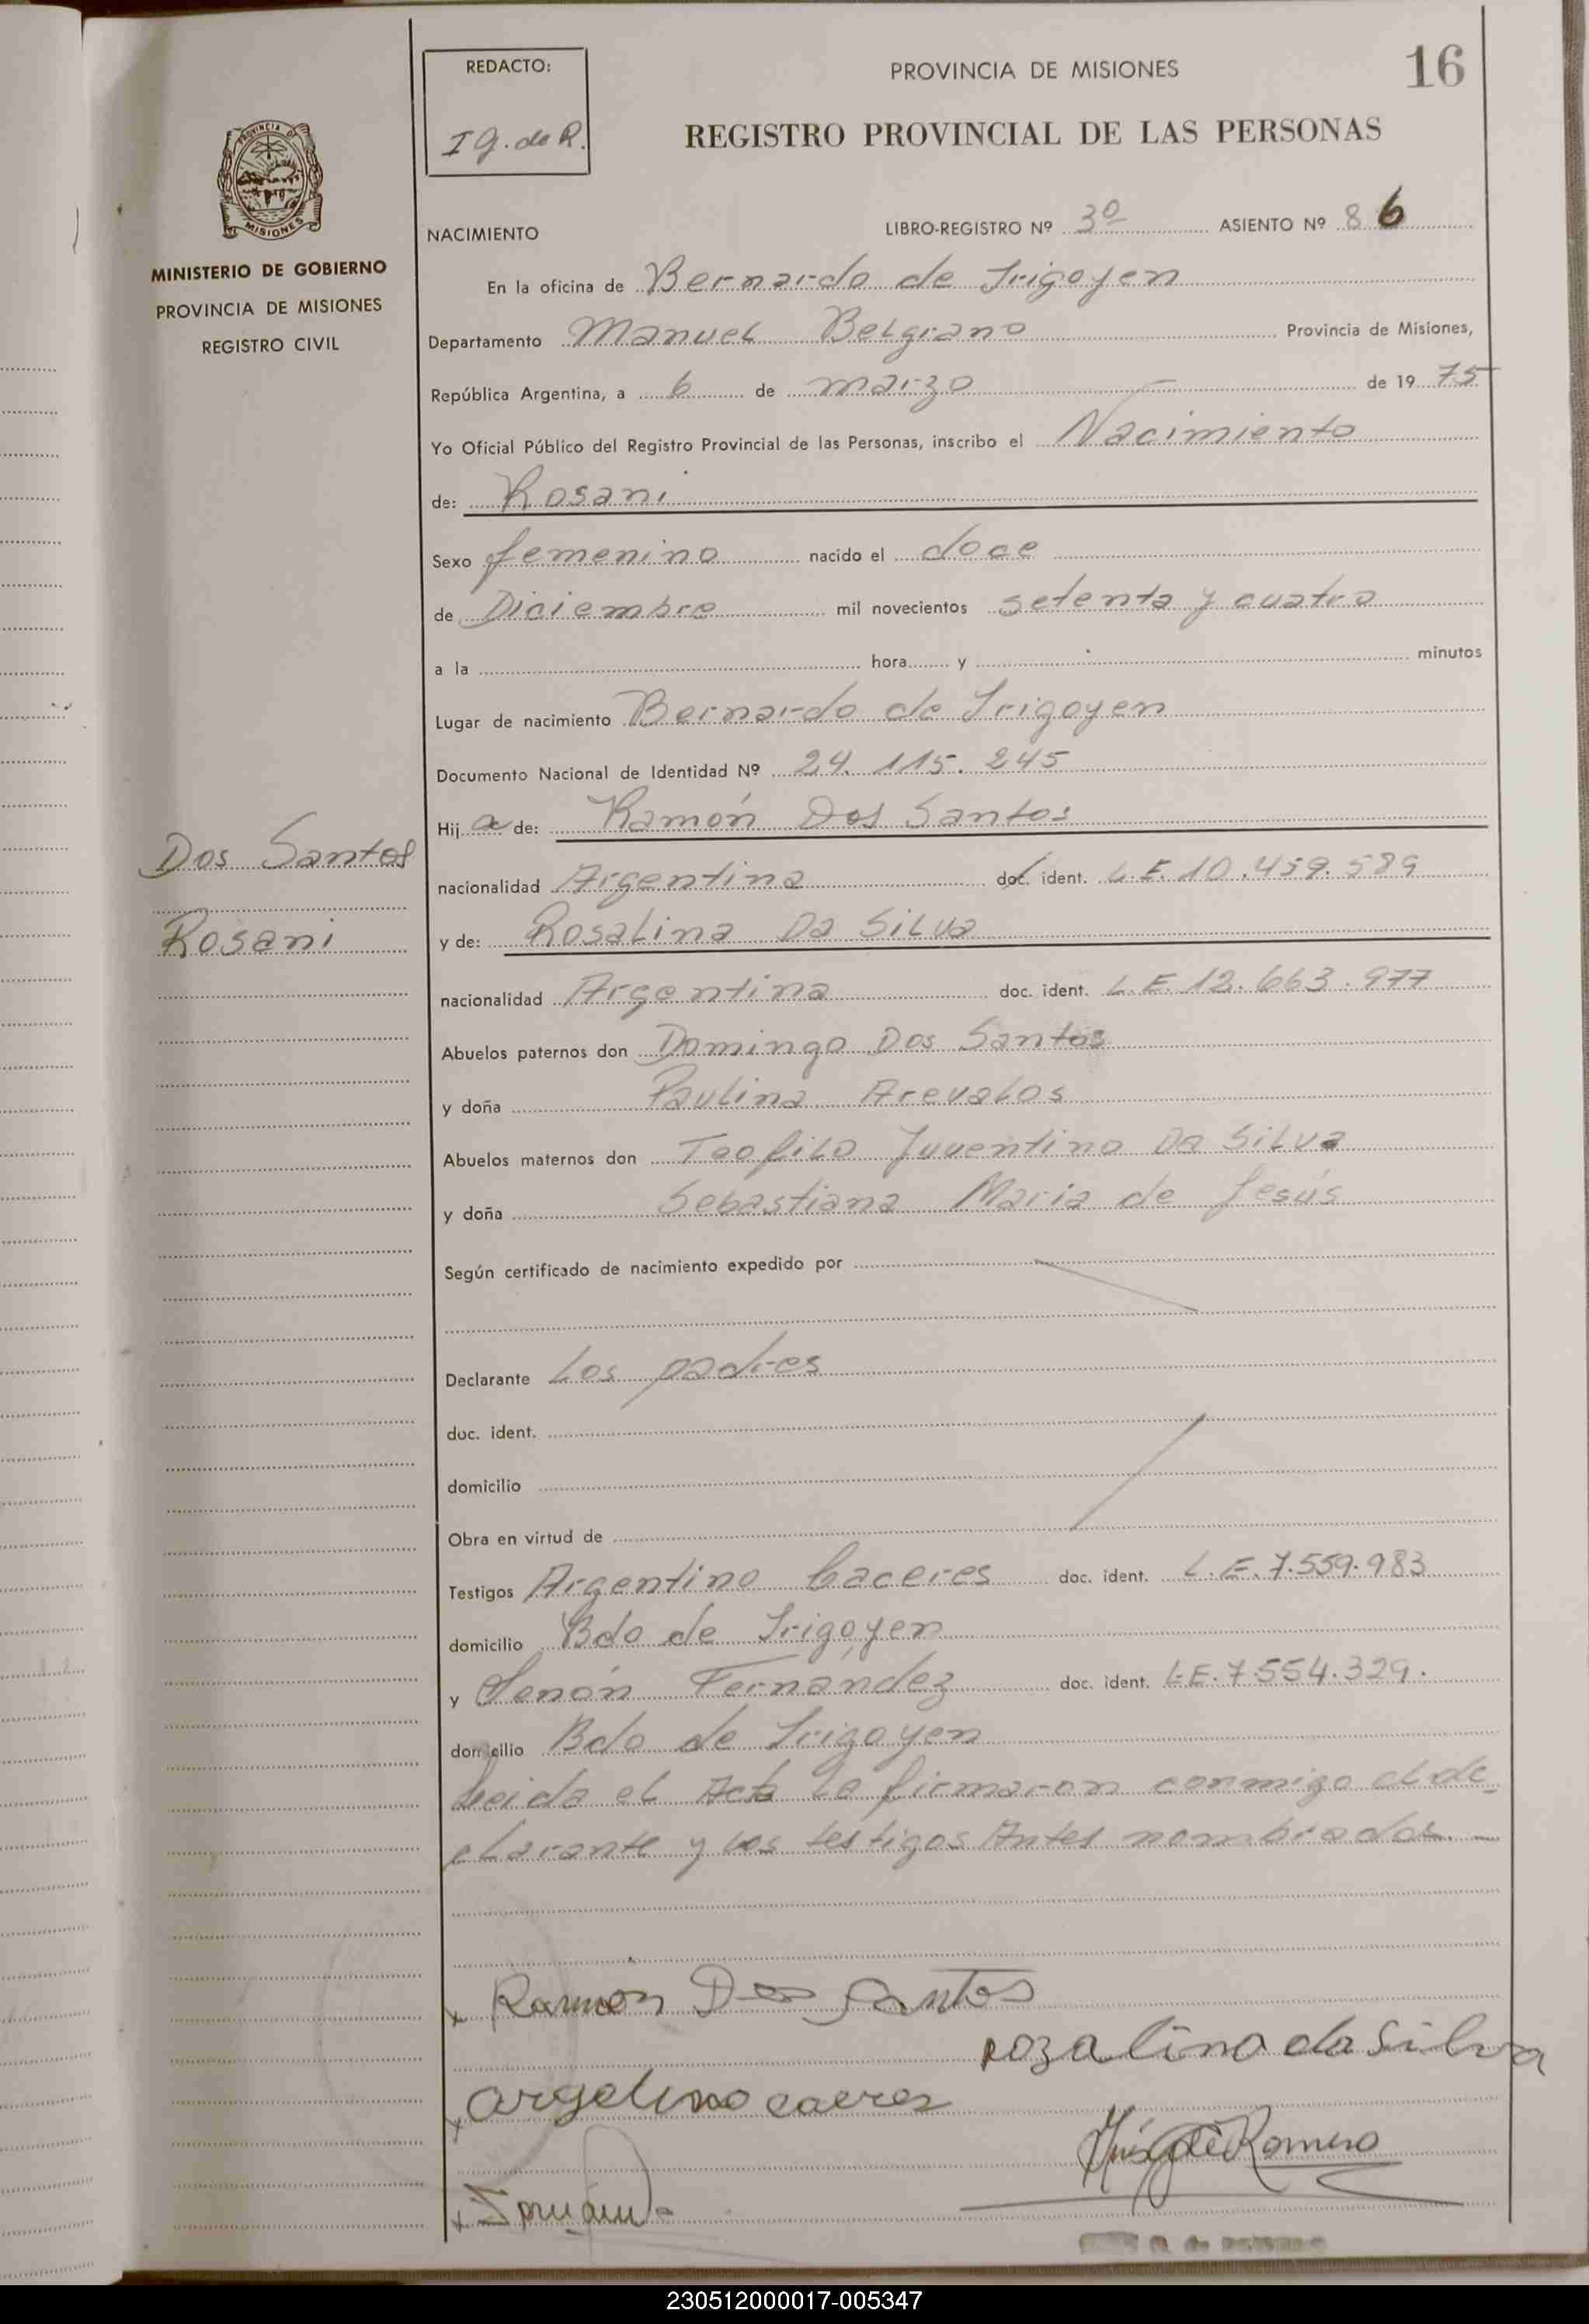 16
REDACTO:
I G. de R.
PROVINCIA DE MISIONES
REGISTRO PROVINCIAL DE LAS PERSONAS
PROVINCIA DE
MISIONES
MINISTERIO DE GOBIERNO
PROVINCIA DE MISIONES
REGISTRO CIVIL
NACIMIENTO LIBRO-REGISTRO Nº 3º ASIENTO Nº 86
En la oficina de Bernardo de Irigoyen
Departamento Manuel Belgrano Provincia de Misiones,
República Argentina, a 6 de marzo de 1975
Yo Oficial Público del Registro Provincial de las Personas, inscribo el Nacimiento
de: Rosani
Sexo femenino nacido el doce
de Diciembre mil novecientos setenta y cuatro
a la hora y minutos
Lugar de nacimiento Bernardo de Irigoyen
Documento Nacional de Identidad Nº 24.115.245
Hija de: Ramón Dos Santos
Dos Santos
Rosani
nacionalidad Argentina doc. ident. L.E. 10.459.589
y de: Rosalina Da Silva
nacionalidad Argentina doc. ident. L.E. 12.663.977
Abuelos paternos don Domingo Dos Santos
y doña Paulina Arevalos
Abuelos maternos don Teofilo Juventino Da Silva
y doña Sebastiana Maria de Jesús
Según certificado de nacimiento expedido por
Declarante Los padres
doc. ident.
domicilio
Obra en virtud de
Testigos Argentino Caceres doc. ident. L.E. 7.559.983
domicilio Bdo de Irigoyen
y Senón Fernández doc. ident. L.E. 7.554.329.
domicilio Bdo de Irigoyen
Leida el Acta la firmaron conmigo el de-
clarante y los testigos Antes nombrados.-
Ramón Dos Santos
rozalina da Silva
argelino caeres
Romero
230512000017-005347